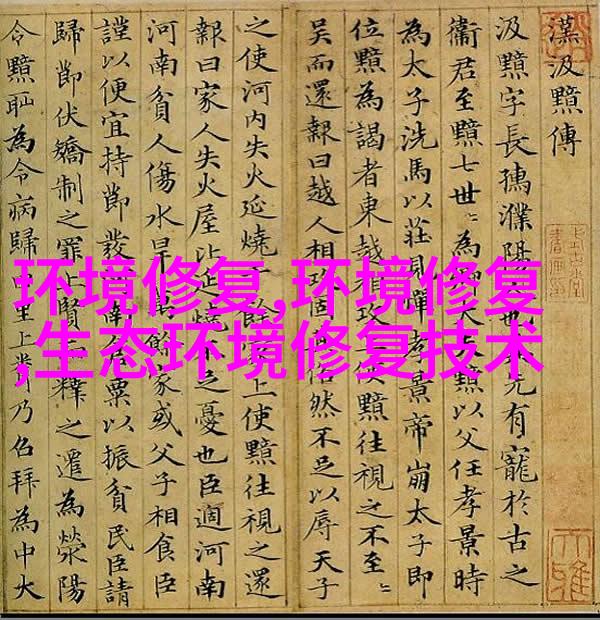 漢汲黯傳
汲黯字長孺濮陽人也其先有寵於古之
衞君至黯七世〻為卿大夫黯以父任孝景時
為太子洗馬以莊見憚孝景帝崩太子即
位黯為謁者東越相攻上使黯往視之不至〻
吳而還報曰越人相攻固其俗然不足以辱天子
之使河内失火延燒千餘家上使黯往視之還
報曰家人失火屋比延燒不足憂也臣適河南
河南貧人傷水旱萬餘家或父子相食臣
謹以便宜持節發河南倉粟以振貧民臣請
歸節伏矯制之罪上賢而釋之遷為滎陽
令黯恥為令病歸田里上聞乃召拜為中大
环境修复,环境修复
,生态环境修复技术